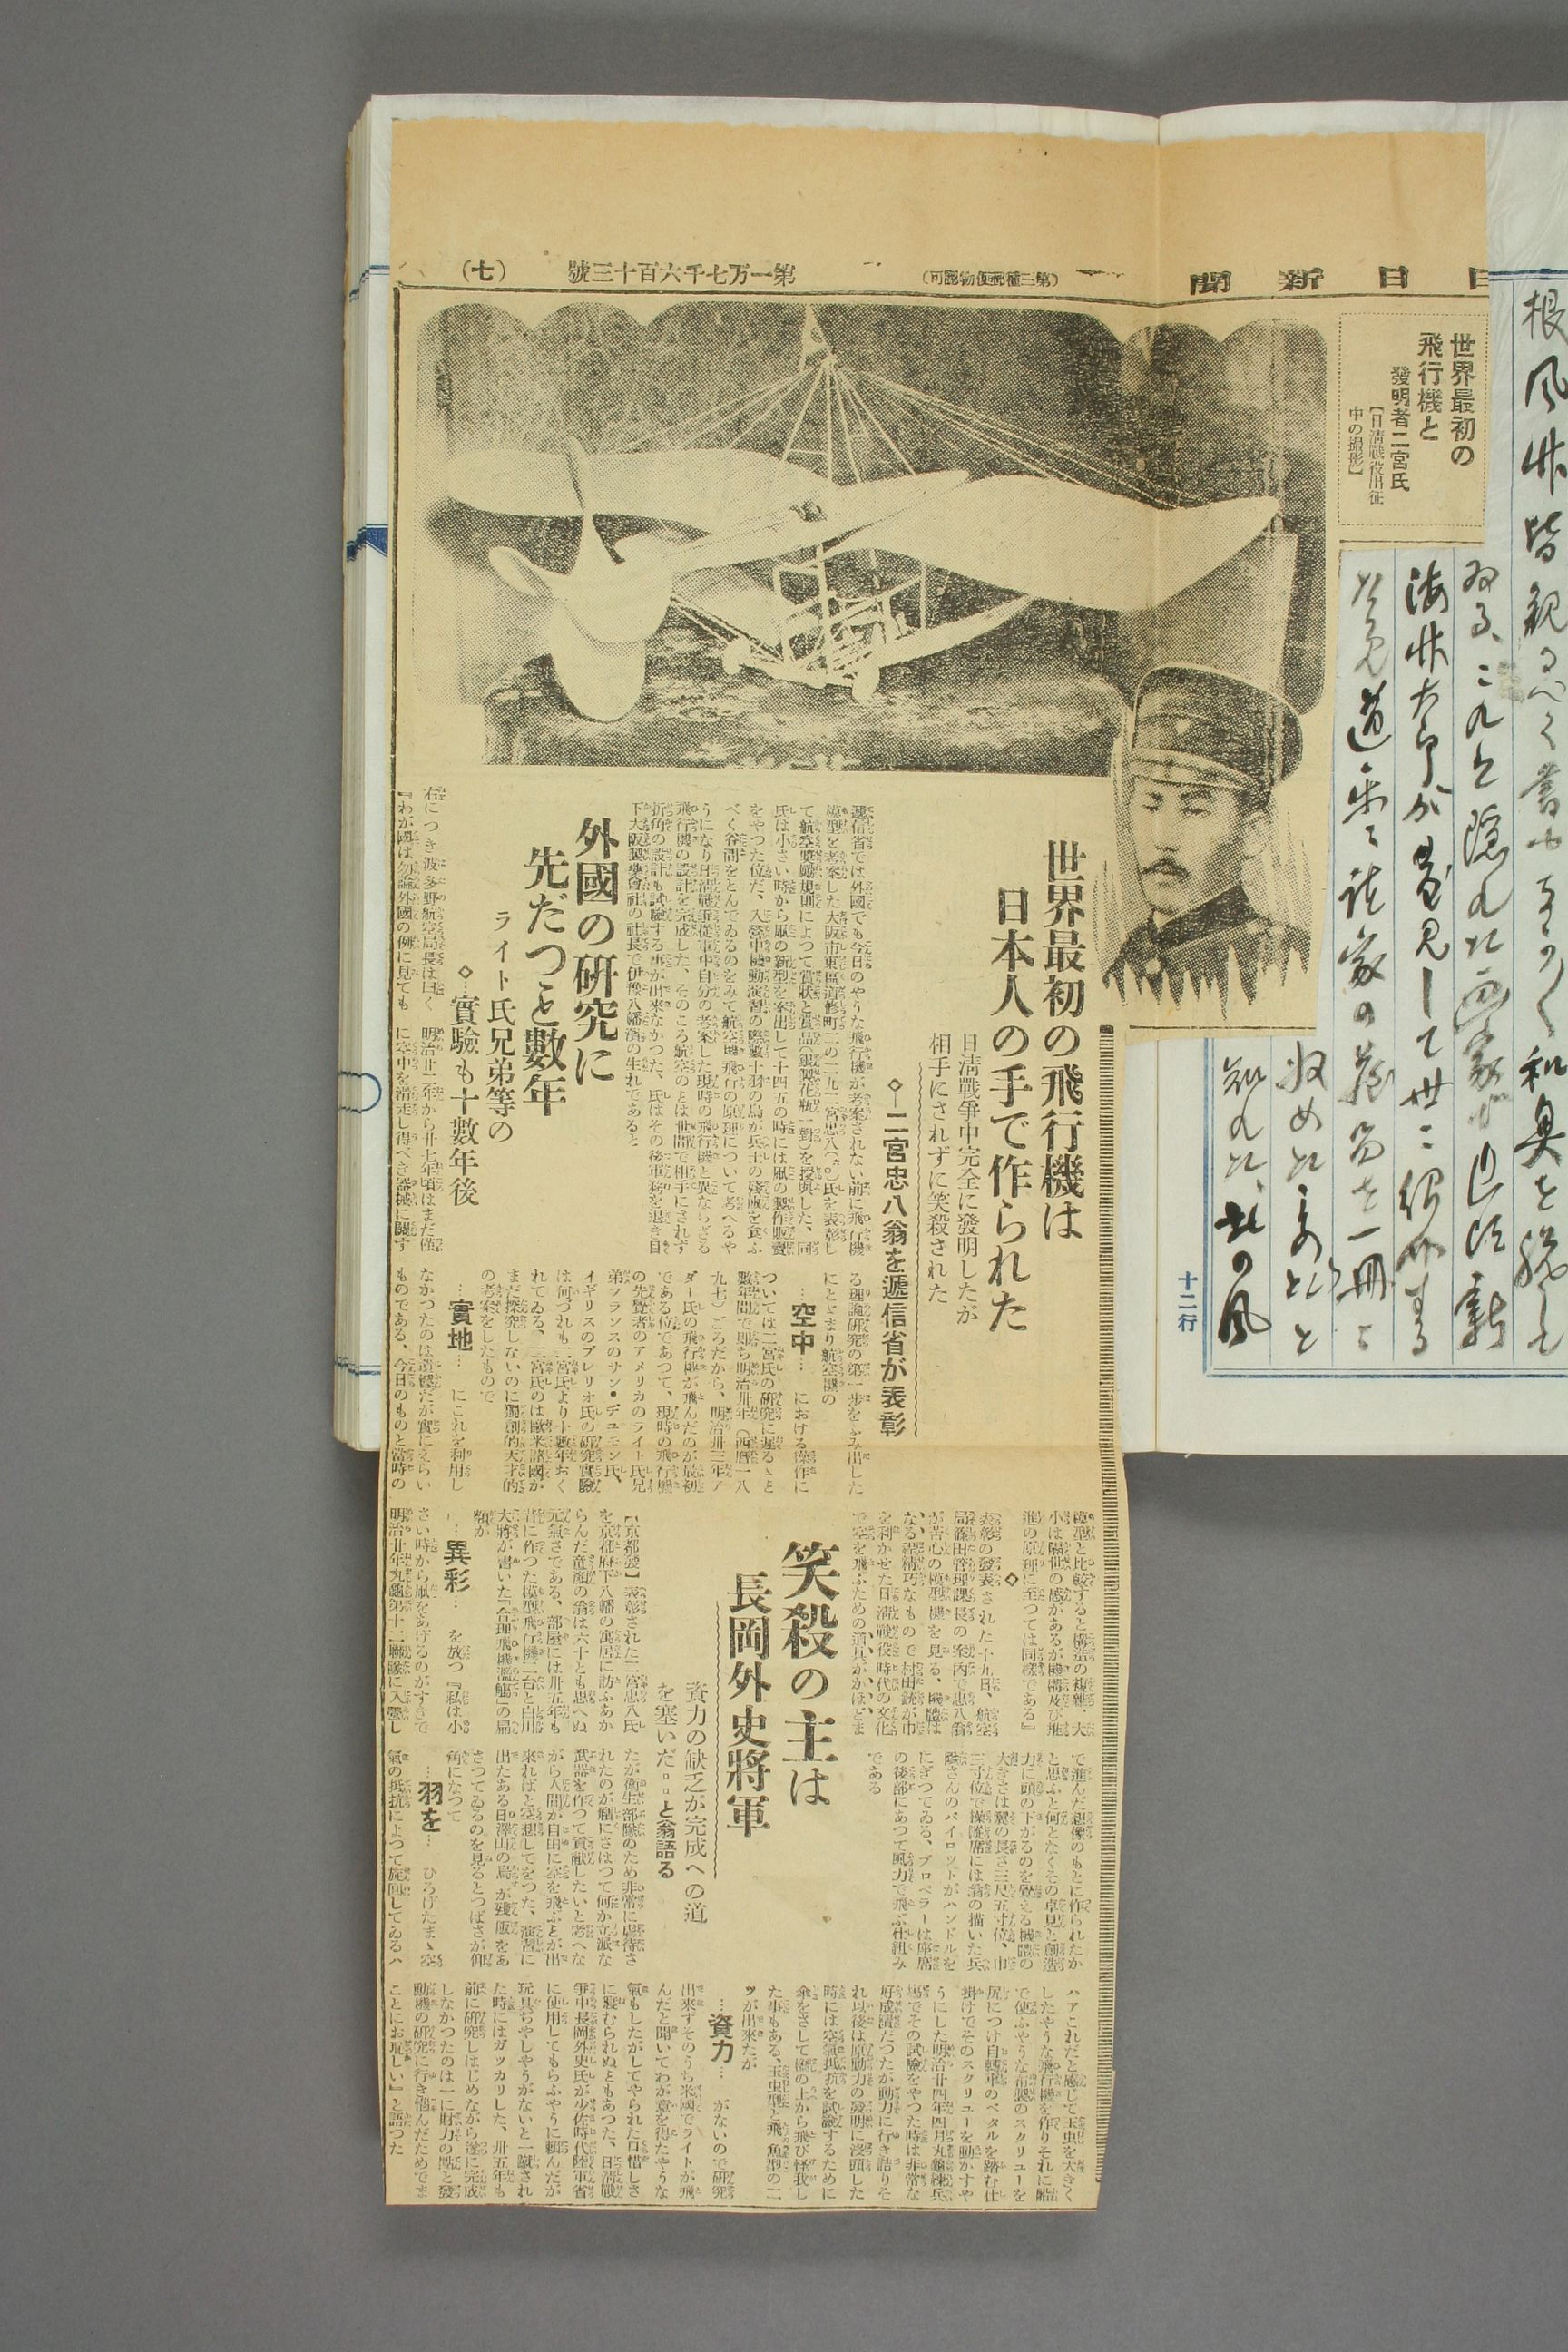 日日新聞
(第三種郵便物認可)
第一万七千六百十三號
(七)
世界最初の
飛行機と
發明者二宮氏
【日淸戰役出征
中の撮影】
世界最初の飛行機は
日本人の手で作られた
日淸戰爭中完全に發明したが
相手にされずに笑殺された
◇―二宮忠八翁を遞信省が表彰
遞信省では外國でも今日のやうな飛行機が考案されない前に飛行機
模型を考案した大阪市東區道修町二の二九二宮忠八氏を表彰し
て航空奬勵規則によつて賞狀と賞品(銀製花瓶一對)を授與した、同
氏は小さい時から凧の新型を案出して十四五の時には凧の製作販賣
をやつた位だ、入營中機動演習の際數十羽の烏が兵士の殘飯を食ふ
べく谷間をとんでゐるのをみて航空機飛行の原理について考へるや
うになり日淸戰爭從軍中自分の考案した現時の飛行機と異ならざる
飛行機の設計を完成した、そのころ航空のことは世間で相手にされず
折角の設計も試驗する事が出來なかつた、氏はその後軍務を退き目
下大阪製藥會社の社長で伊豫八幡濱の生れであると
外國の硏究に
先だつと數年
ライト氏兄弟等の
◇…實驗も十數年後
右につき波多野航空局長は曰く
『わが國は勿論外國の例に見ても
明治廿一年から廿七年頃はまだ僅
に空中を滑走し得べき器械に關す
る理論硏究の第一步をふみ出した
にとゞまり航空機の
…空中…における操作に
ついては二宮氏の硏究に遲るゝと
數年間で卽ち明治卅年(西曆一八
九七)ごろだから、明治卅三年ア
ダー氏の飛行機が飛んだのが最初
である位であつて、現時の飛行機
の先覺者のアメリカのライト氏兄
弟フランスのサン・デユモン氏、
イギリスのブレリオ氏の硏究實驗
は何づれも二宮氏より十數年おく
れてゐる、二宮氏のは歐米諸國が
まだ探究しないのに獨創的天才的
の考案をしたもので
…實地…にこれを利用し
なかつたのは遺憾だが實にえらい
ものである、今日のものと當時の
模型と比較すると構造の複雜、大
小は隔世の感があるが機構及び推
進の原理に至つては同樣である』
◇
表彰の發表された十九日、航空
局篠田管理課長の案内で忠八翁
が苦心の模型機を見る、機體は
なる程精巧なもので村田銃が巾
を利かせた日淸戰役時代の文化
で空を飛ぶための道具がかほどま
で進んだ想像のもとに作られたか
と思ふと何となくその卓見と創造
力に頭の下がるのを覺える機體の
大きさは翼の長さ三尺五寸位、巾
三寸位で操縱席には翁の描いた兵
隊さんのパイロツトがハンドルを
にぎつてゐる、プロペラーは座席
の後部にあつて風力で飛ぶ仕組み
である
笑殺の主は
長岡外史將軍
資力の缺乏が完成への道
を塞いだ‥と翁語る
【京都發】表彰された二宮忠八氏
を京都府下八幡の寓居に訪ふあか
らんだ童顏の翁は六十とも思へぬ
元氣さである、部屋には卅五年も
昔に作つた模型飛行機二台と白川
大將が書いた『合理飛機濫觴』の扁
額が
…異彩…を放つ『私は小
さい時から凧をあげるのがすきで
明治廿年丸龜第十二聯隊に入營し
たが衞生部隊のため非常に虐待さ
れたのが癪にさはつて何か立派な
武器を作つて貢獻したいと考へな
がら人間が自由に空を飛ぶとが出
來ればと空想してをつた、演習に
出たある日澤山の烏が殘飯をあ
さつてゐるのを見るとつばさが仰
角になつて
…羽を…ひろげたまゝ空
氣の抵抗によつて旋回してゐるハ
ハアこれだと感じて玉虫を大きく
したやうな飛行機を作りそれに艦
で使ふやうな布製のスクリユーを
尻につけ自轉車のペタルを踏む仕
掛けでそのスクリユーを動かすや
うにした明治廿四年四月丸龜練兵
場でその試驗をやつた時は非常な
好成績だつたが動力に行き詰りそ
れ以後は原動力の發明に沒頭した
時には空氣抵抗を試驗するために
傘をさして崖の上から飛び怪我し
た事もある、玉虫型と飛魚型の二
ツが出來たが
…資力…がないので硏究
出來ずそのうち米國でライトが飛
んだと聞いてわが意を得たやうな
氣もしたがしてやられた口惜しさ
に寢むられぬともあつた、日淸戰
爭中長岡外史氏が少佐時代陸軍省
に使用してもらふやうに賴んだが
玩具ぢやしやうがないと一蹴され
た時にはガツカリした、卅五年も
前に硏究しはじめながら遂に完成
しなかつたのは一に財力の點と發
動機の硏究に行き惱んだためでま
ことにお恥しい』と語つた
十二行